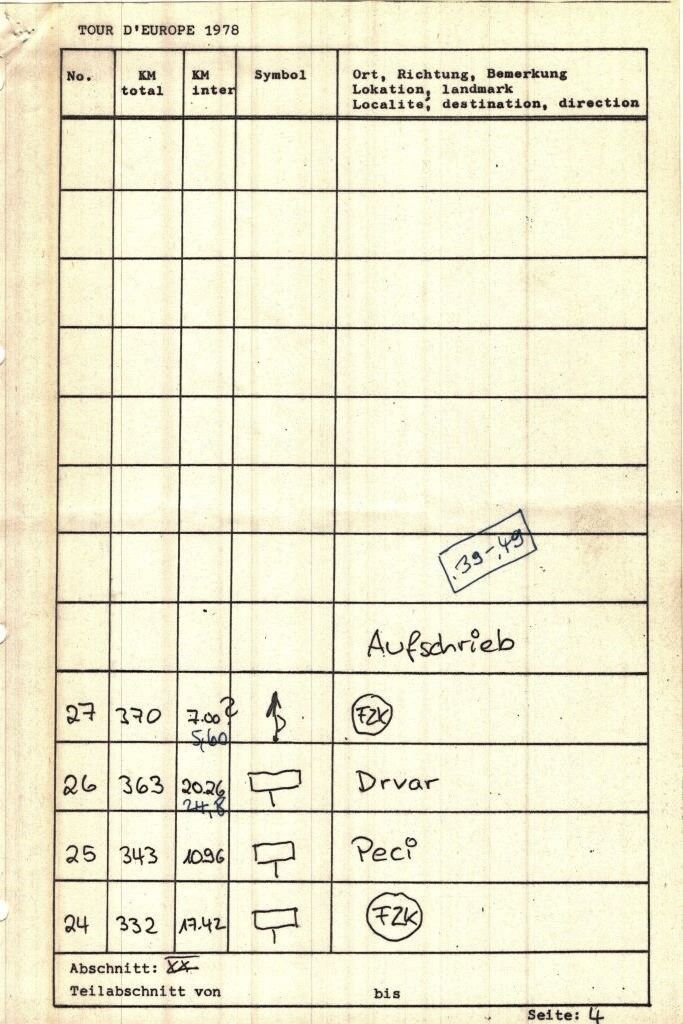 TOUR D'EUROPE 1978
No. KM total KM inter Symbol Ort, Richtung, Bemerkung
Lokation, landmark
Localité, destination, direction
.39-.49
Aufschrieb
27 370 7.00? FZK
5,60
26 363 20.26 Drvar
24,8
25 343 10.96 Peci
24 332 17.42 FZK
Abschnitt: XX
Teilabschnitt von bis
Seite: 4